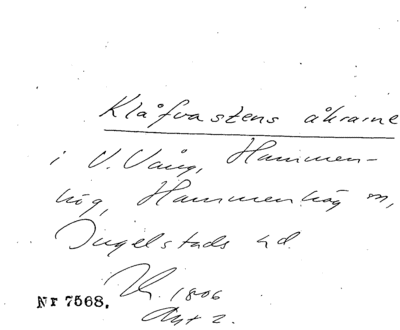 Klåfvastens åkrarne
i V. Vång, Hammen-
hög, Hammenhög sn,
Ingelstads hd
Nr 7568.
1806
Akt 2.